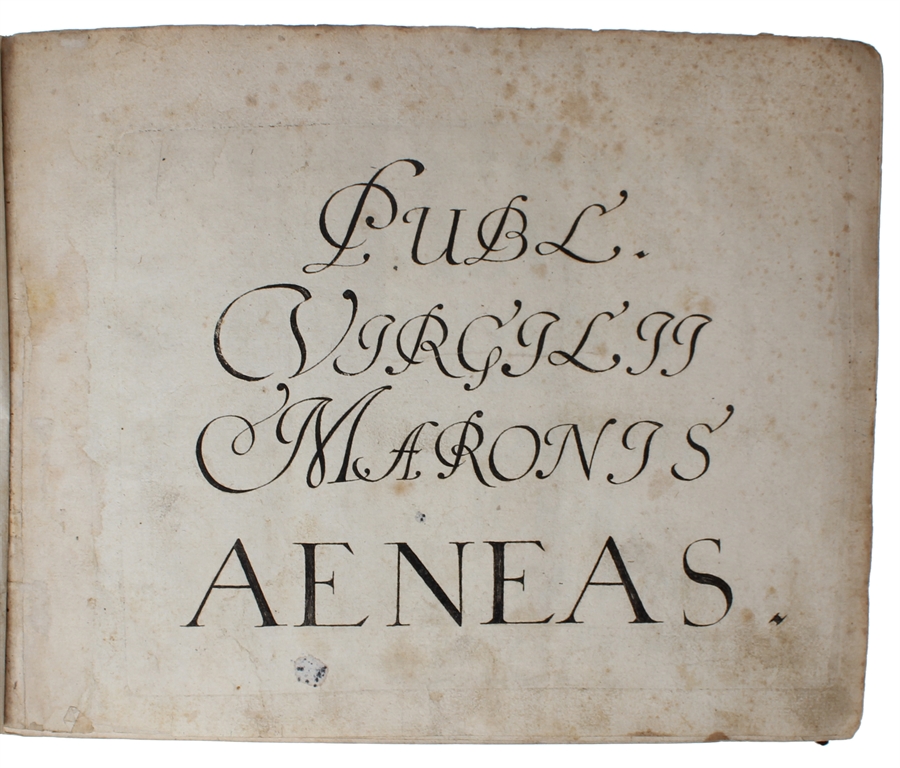 PUBL.
VIRGILII
MARONIS
AENEAS.